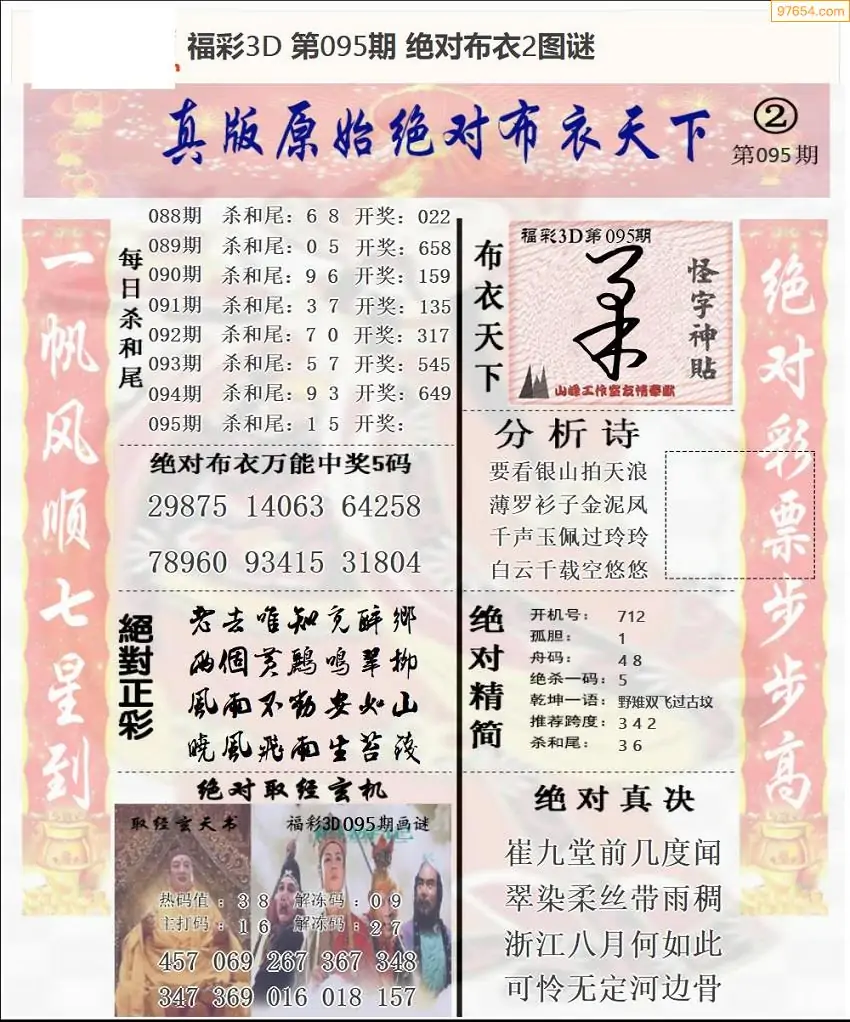 97654.com
福彩3D 第095期 绝对布衣2图谜
真版原始绝对布衣天下
②
第095期
一帆风顺七星到
每日杀和尾
088期 杀和尾：6 8 开奖：022
089期 杀和尾：0 5 开奖：658
090期 杀和尾：9 6 开奖：159
091期 杀和尾：3 7 开奖：135
092期 杀和尾：7 0 开奖：317
093期 杀和尾：5 7 开奖：545
094期 杀和尾：9 3 开奖：649
095期 杀和尾：1 5 开奖：
绝对布衣万能中奖5码
29875 14063 64258
78960 93415 31804
絕對正彩
老去唯知充醉鄉
兩個黃鸝鳴翠柳
風雨不動安如山
曉風飛雨生苔錢
绝对取经玄机
取经玄天书
福彩3D095期画谜
热码值：3 8 解冻码：0 9
主打码：1 6 解冻码：2 7
457 069 267 367 348
347 369 016 018 157
布衣天下
福彩3D第095期
怪字神贴
山峰工作室友情奉献
分析诗
要看银山拍天浪
薄罗衫子金泥凤
千声玉佩过玲玲
白云千载空悠悠
绝对精简
开机号： 712
孤胆： 1
舟码： 4 8
绝杀一码：5
乾坤一语：野雉双飞过古坟
推荐跨度：3 4 2
杀和尾： 3 6
绝对真决
崔九堂前几度闻
翠染柔丝带雨稠
浙江八月何如此
可怜无定河边骨
绝对彩票步步高